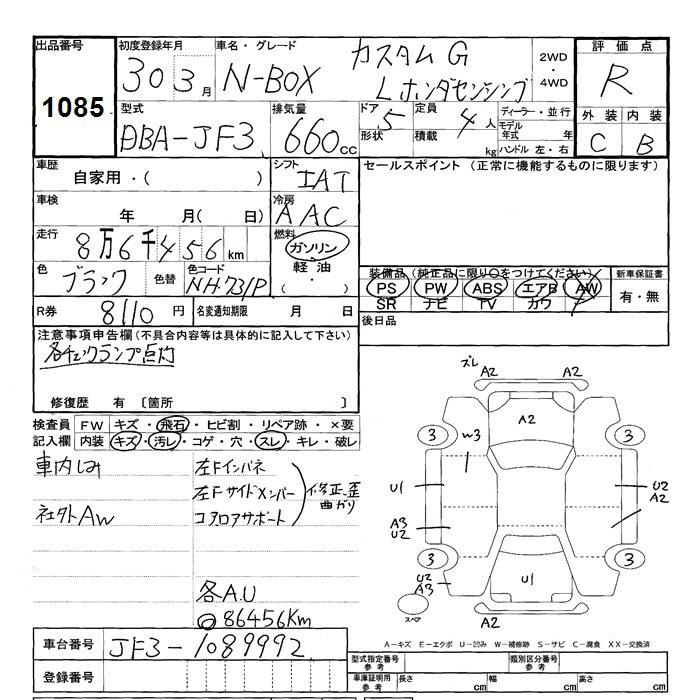 出品番号 初度登録年月 車名・グレード 評価点
1085 30 3月 N-BOX カスタムG 2WD・4WD R
Lホンダセンシング
型式 排気量 ドア 形状 定員 積載 ディーラー・並行 外装 内装
DBA-JF3 660cc 5 4人 モデル年式 年 C B
kg ハンドル 左・右
車歴 シフト セールスポイント (正常に機能するものに限ります)
自家用・( ) IAT
車検 冷房
年 月( 日) AAC
走行 燃料
8万6千456km ガソリン
色 色替 色コード 軽油
ブラック NH-731P ( ・ )
装備品(純正品に限り○をつけてください) 新車保証書
PS PW ABS エアB AW 有・無
SR ナビ TV カワ
R券 8110円 名変通知期限 月 日 後日品
注意事項申告欄(不具合内容等は具体的に記入して下さい)
各チェックランプ点灯
修復歴 有 〔箇所 〕
検査員 FW キズ・飛石・ヒビ割・リペア跡・×要
記入欄 内装 キズ・汚レ・コゲ・穴・スレ・キレ・破レ
車内しみ 左Fインパネ
左Fサイドメンバー 修正、歪
曲がり
社外AW コアロアサポート
各A.U
86456Km
ズレ
A2 A2
A2
3 3
W3
U1 U2
A2
A3
U2
3 3
U2
A3
U1
スペア
A2
A-キズ E-エクボ U-凹み W-補修跡 S-サビ C-腐食 XX-交換済
車台番号 JF3-1089992 型式指定番号 参考 類別区分番号 参考
登録番号 車庫証明用 参考 長さ cm 幅 cm 高さ cm